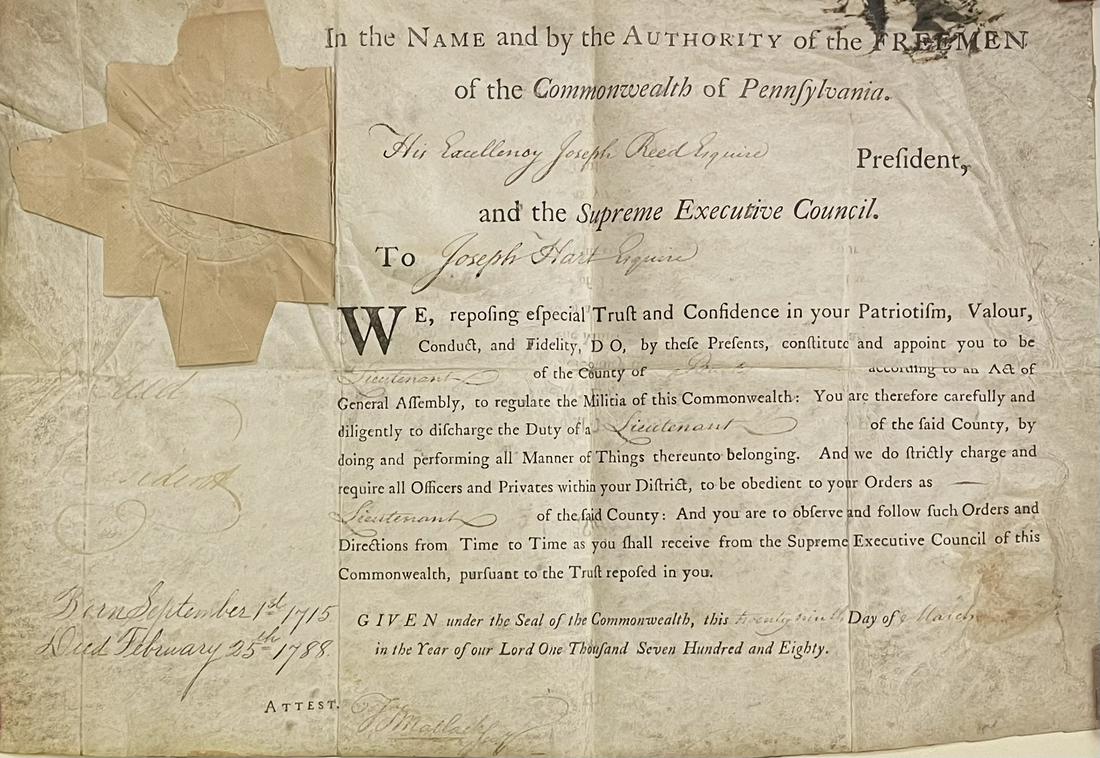 In the NAME and by the AUTHORITY of the FREEMEN
of the Commonwealth of Pennſylvania.
His Excellency Joseph Reed Esquire Preſident,
and the Supreme Executive Council.
To Joseph Hart Esquire
WE, repoſing eſpecial Truſt and Confidence in your Patriotiſm, Valour,
Conduct, and Fidelity, DO, by theſe Preſents, conſtitute and appoint you to be
Lieutenant of the County of according to an Act of
General Aſſembly, to regulate the Militia of this Commonwealth: You are therefore carefully and
diligently to diſcharge the Duty of a Lieutenant of the ſaid County, by
doing and performing all Manner of Things thereunto belonging. And we do ſtrictly charge and
require all Officers and Privates within your Diſtrict, to be obedient to your Orders as
Lieutenant of the ſaid County: And you are to obſerve and follow ſuch Orders and
Directions from Time to Time as you ſhall receive from the Supreme Executive Council of this
Commonwealth, purſuant to the Truſt repoſed in you.
Born September 1st 1715
Died February 25th 1788.
GIVEN under the Seal of the Commonwealth, this twenty ninth Day of March
in the Year of our Lord One Thouſand Seven Hundred and Eighty.
ATTEST.